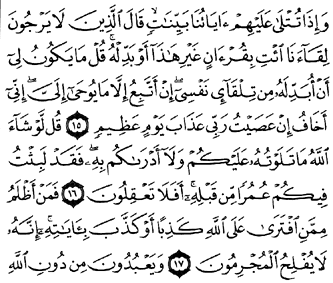 وَإِذَا تُتْلَىٰ عَلَيْهِمْ ءَايَاتُنَا بَيِّنَٰتٍ قَالَ ٱلَّذِينَ لَا يَرْجُونَ
لِقَآءَنَا ٱئْتِ بِقُرْءَانٍ غَيْرِ هَٰذَآ أَوْ بَدِّلْهُ ۚ قُلْ مَا يَكُونُ لِىٓ
أَنْ أُبَدِّلَهُۥ مِن تِلْقَآئِ نَفْسِىٓ ۖ إِنْ أَتَّبِعُ إِلَّا مَا يُوحَىٰٓ إِلَىَّ ۖ إِنِّىٓ
أَخَافُ إِنْ عَصَيْتُ رَبِّى عَذَابَ يَوْمٍ عَظِيمٍ ١٥ قُل لَّوْ شَآءَ
ٱللَّهُ مَا تَلَوْتُهُۥ عَلَيْكُمْ وَلَآ أَدْرَىٰكُم بِهِۦ ۖ فَقَدْ لَبِثْتُ
فِيكُمْ عُمُرًا مِّن قَبْلِهِۦٓ ۚ أَفَلَا تَعْقِلُونَ ١٦ فَمَنْ أَظْلَمُ
مِمَّنِ ٱفْتَرَىٰ عَلَى ٱللَّهِ كَذِبًا أَوْ كَذَّبَ بِـَٔايَٰتِهِۦٓ ۚ إِنَّهُۥ
لَا يُفْلِحُ ٱلْمُجْرِمُونَ ١٧ وَيَعْبُدُونَ مِن دُونِ ٱللَّهِ